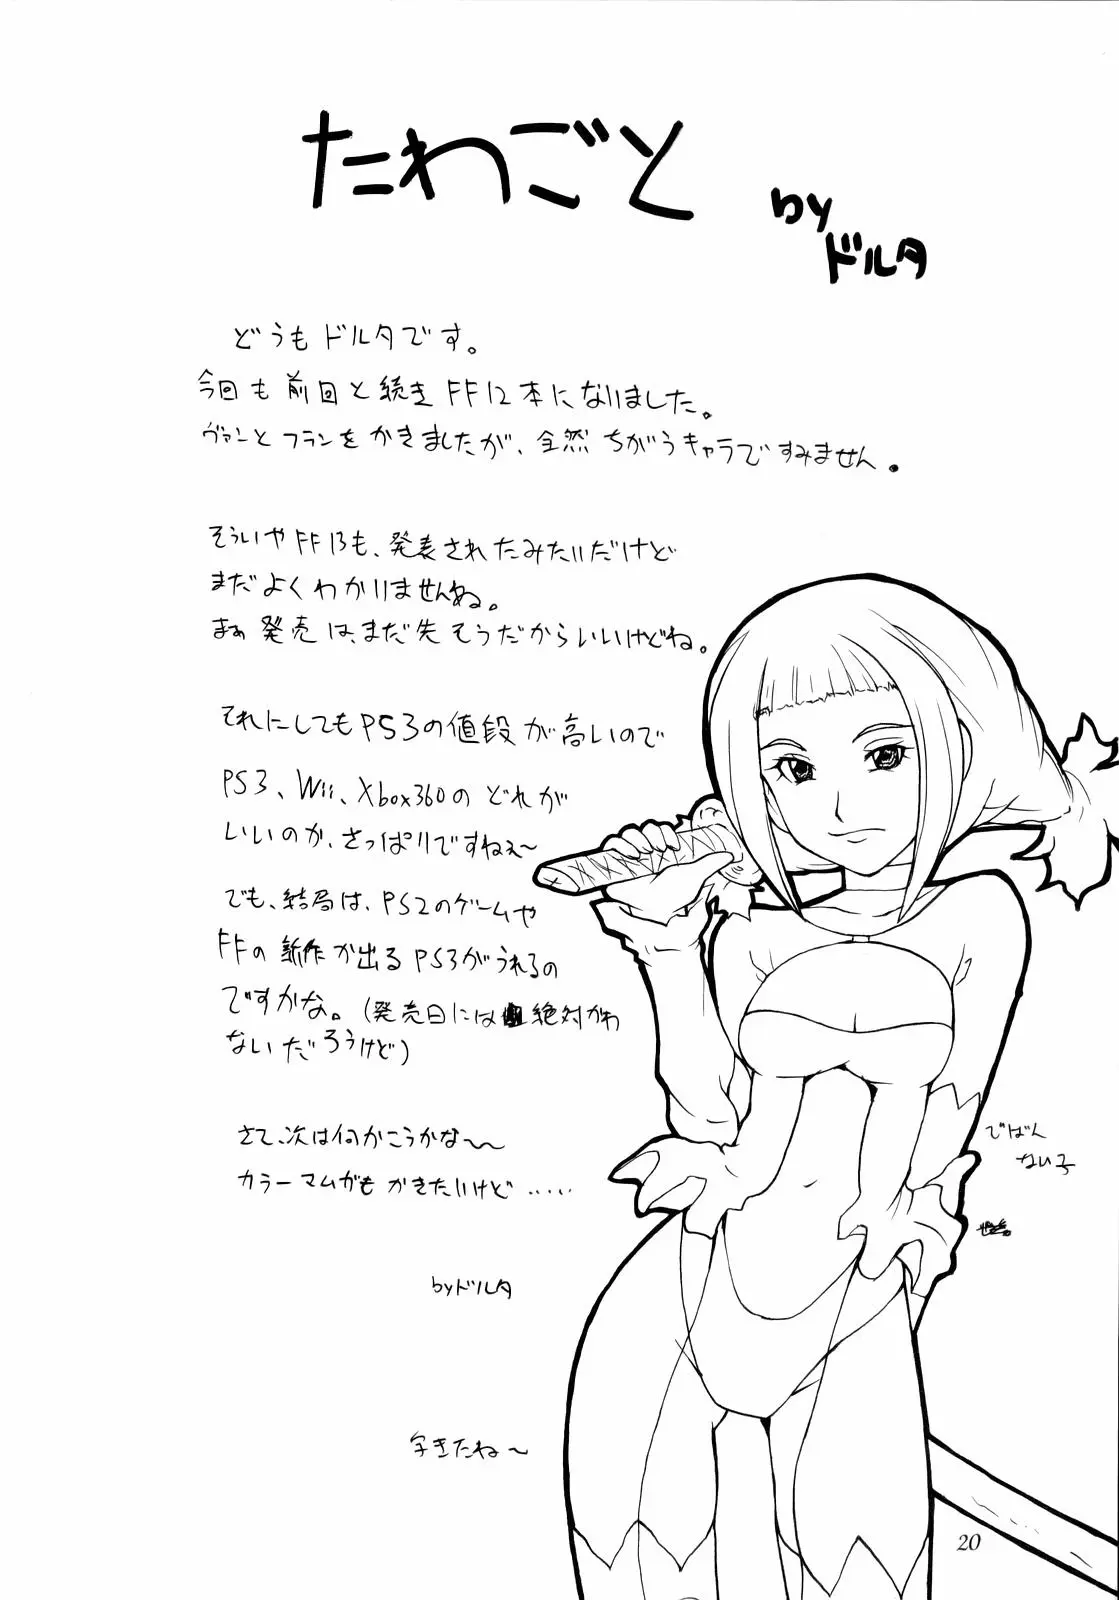 たわごと
by
ドルタ
どうもドルタです。
今回も前回と続きFF12本になりました。
ヴァンとフランをかきましたが、全然ちがうキャラですみません。
そういやFF13も、発表されたみたいだけど
まだよくわかりませんね。
まぁ発売は、まだ先そうだからいいけどね。
それにしてもPS3の値段が高いので
PS3、Wii、Xbox360のどれが
いいのか、さっぱりですねぇ〜
でも、結局は、PS2のゲームや
FFの新作が出るPS3がうれるの
ですかな。(発売日には絶対かわ
ないだろうけど)
さて、次は何かこうかな〜〜
カラーマムガもかきたいけど‥‥‥
byドルタ
でばん
ない子
字きたね〜
20